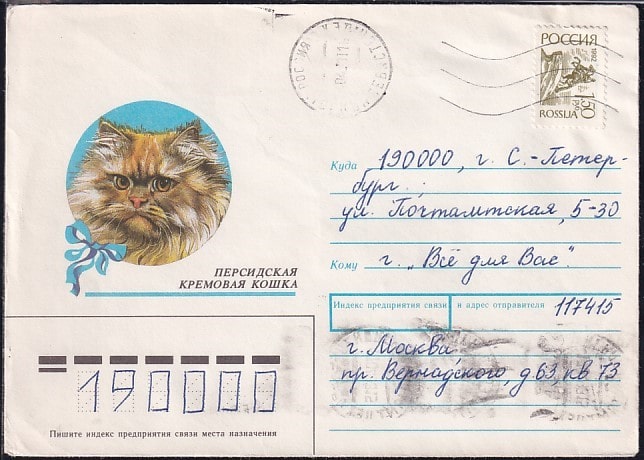 РОССИЯ
1992
1.50
руб
ROSSIJA
Куда 190000, г. С.-Петер-
бург.
ул. Почтамтская, 5-30
Кому г. „Всё для Вас".
ПЕРСИДСКАЯ
КРЕМОВАЯ КОШКА
Индекс предприятия связи и адрес отправителя 117415
г. Москва
пр. Вернадского, д 63, кв. 73
190000
Пишите индекс предприятия связи места назначения